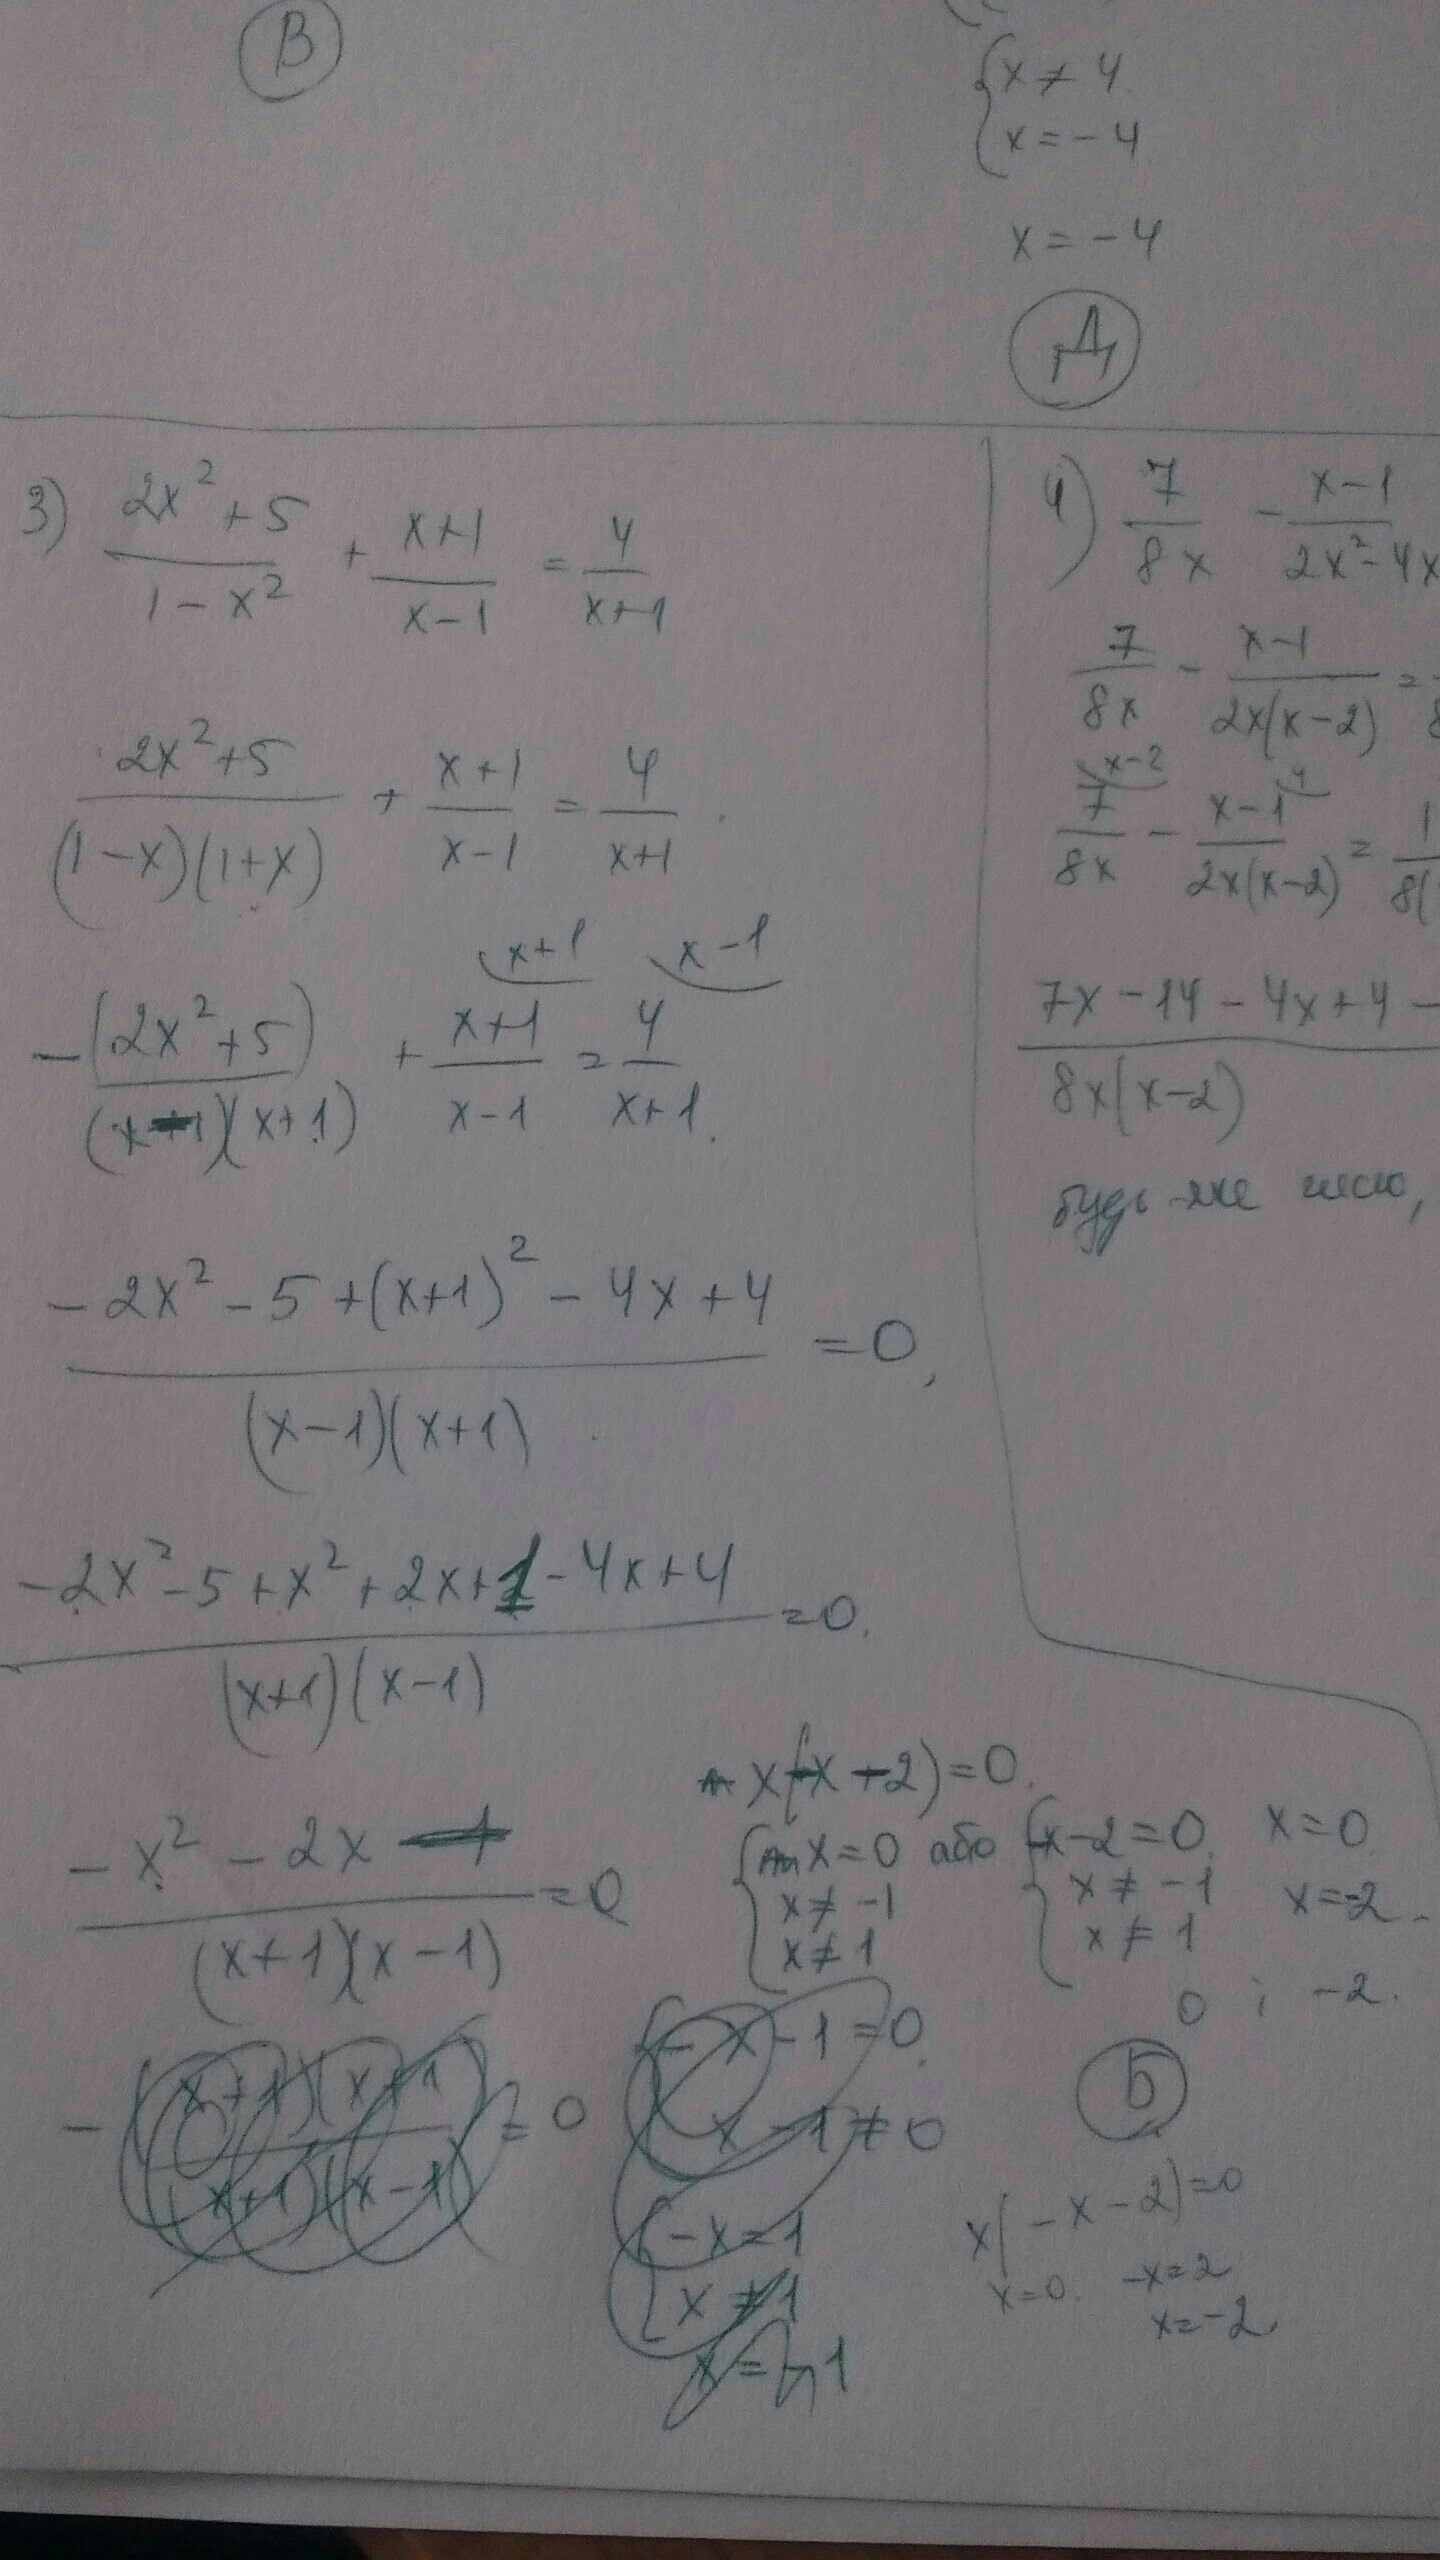 В
{ x ≠ 4.
x = -4
x = -4
Д
3) (2x² + 5)/(1 - x²) + (x+1)/(x-1) = 4/(x+1)
(2x² + 5)/((1-x)(1+x)) + (x+1)/(x-1) = 4/(x+1).
x+1 x-1
-(2x² + 5)/((x-1)(x+1)) + (x+1)/(x-1) = 4/(x+1).
(-2x² - 5 + (x+1)² - 4x + 4)/((x-1)(x+1)) = 0,
(-2x² - 5 + x² + 2x + 1 - 4x + 4)/((x+1)(x-1)) = 0.
(-x² - 2x)/((x+1)(x-1)) = 0
x(-x - 2) = 0.
{ x = 0 або { -x - 2 = 0. x = 0
x ≠ -1 x ≠ -1 x = -2.
x ≠ 1 x ≠ 1
0 і -2.
Б
-((x+1)(x+1))/((x+1)(x-1)) = 0
{ -x - 1 = 0.
x - 1 ≠ 0
{ -x = 1
x ≠ 1
x = -1
x(-x - 2) = 0
x = 0. -x = 2
x = -2.
4) 7/8x - (x-1)/(2x² - 4x
7/8x - (x-1)/(2x(x-2)) =
x-2 4
7/8x - (x-1)/(2x(x-2)) = 1/8(
(7x - 14 - 4x + 4 -)/(8x(x-2))
будь-яке число,